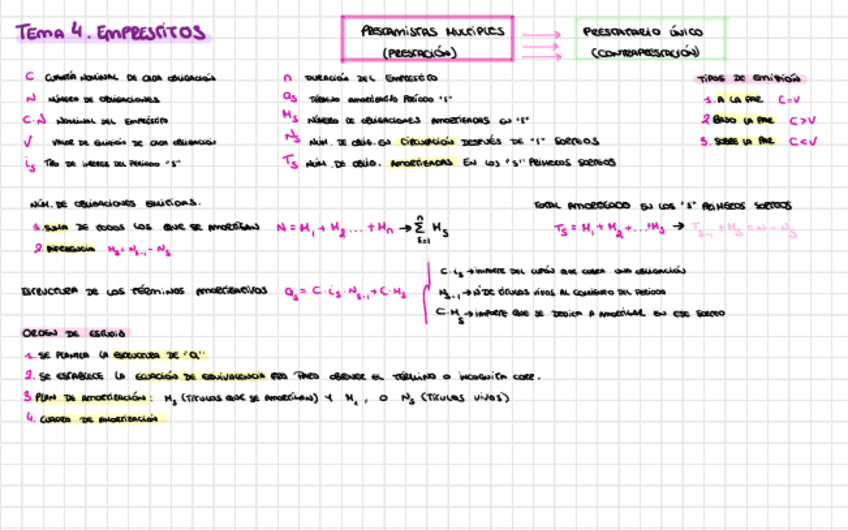 TEMA 4. EMPRESTITOS
PRESTAMISTAS MULTIPLES
(PRESTACIÓN)
PRESTATARIO ÚNICO
(CONTRAPRESTACIÓN)
C CUANTÍA NOMINAL DE CADA OBLIGACIÓN
N NÚMERO DE OBLIGACIONES
C·N NOMINAL DEL EMPRÉSTITO
V VALOR DE EMISIÓN DE CADA OBLIGACIÓN
is TIPO DE INTERES DEL PERIODO "S"
n DURACIÓN DEL EMPRÉSTITO
as TÉRMINO AMORTIZATIVO PERIODO "S"
Ms NÚMERO DE OBLIGACIONES AMORTIZADAS EN "S"
Ns NÚM. DE OBLIG. EN CIRCULACIÓN DESPUÉS DE "S" SORTEOS
Ts NÚM. DE OBLIG. AMORTIZADAS EN LOS "S" PRIMEROS SORTEOS
TIPOS DE EMISIÓN
1. A LA PAR C=V
2 BAJO LA PAR C>V
3. SOBRE LA PAR C<V
NÚM. DE OBLIGACIONES EMITIDAS.
1. SUMA DE TODOS LOS QUE SE AMORTIZAN N = M1 + M2 ... + Mn → ∑ Ms
2 DIFERENCIA Ms = Ns-1 - Ns
TOTAL AMORTIZADO EN LOS "S" PRIMEROS SORTEOS
Ts = M1 + M2 + ... Ms → Ts-1 + Ms = N - Ns
ESTRUCTURA DE LOS TÉRMINOS AMORTIZATIVOS as = C·is·Ns-1 + C·Ms
C·is → IMPORTE DEL CUPÓN QUE COBRA UNA OBLIGACIÓN
Ns-1 → Nº DE TÍTULOS VIVOS AL COMIENZO DEL PERIODO
C·Ms → IMPORTE QUE SE DEDICA A AMORTIZAR EN ESE SORTEO
ORDEN DE ESTUDIO
1. SE PLANTEA LA ESTRUCTURA DE "a"
2. SE ESTABLECE LA ECUACIÓN DE EQUIVALENCIA PARA OBTENER EL TÉRMINO O INCOGNITA CORR.
3 PLAN DE AMORTIZACIÓN: Ms (TÍTULOS QUE SE AMORTIZAN) Y M1, O Ns (TÍTULOS VIVOS)
4. CUADRO DE AMORTIZACIÓN